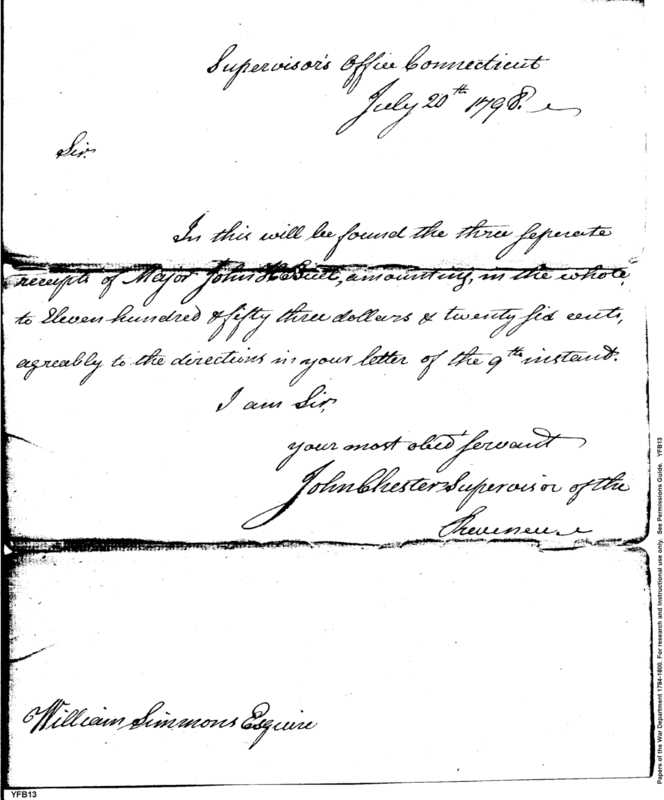 Supervisor's Office Connecticut
July 20th 1798.
Sir.
In this will be found the three seperate
receipts of Major John H Buell, amounting, in the whole,
to Eleven hundred & fifty three dollars & twenty six cents,
agreably to the directions in your letter of the 9th instant.
I am Sir,
your most obed servant
John Chester Supervisor of the
Revenue
William Simmons Esquire
YFB13
Papers of the War Department 1784-1800. For research and instructional use only. See Permissions Guide. YFB13